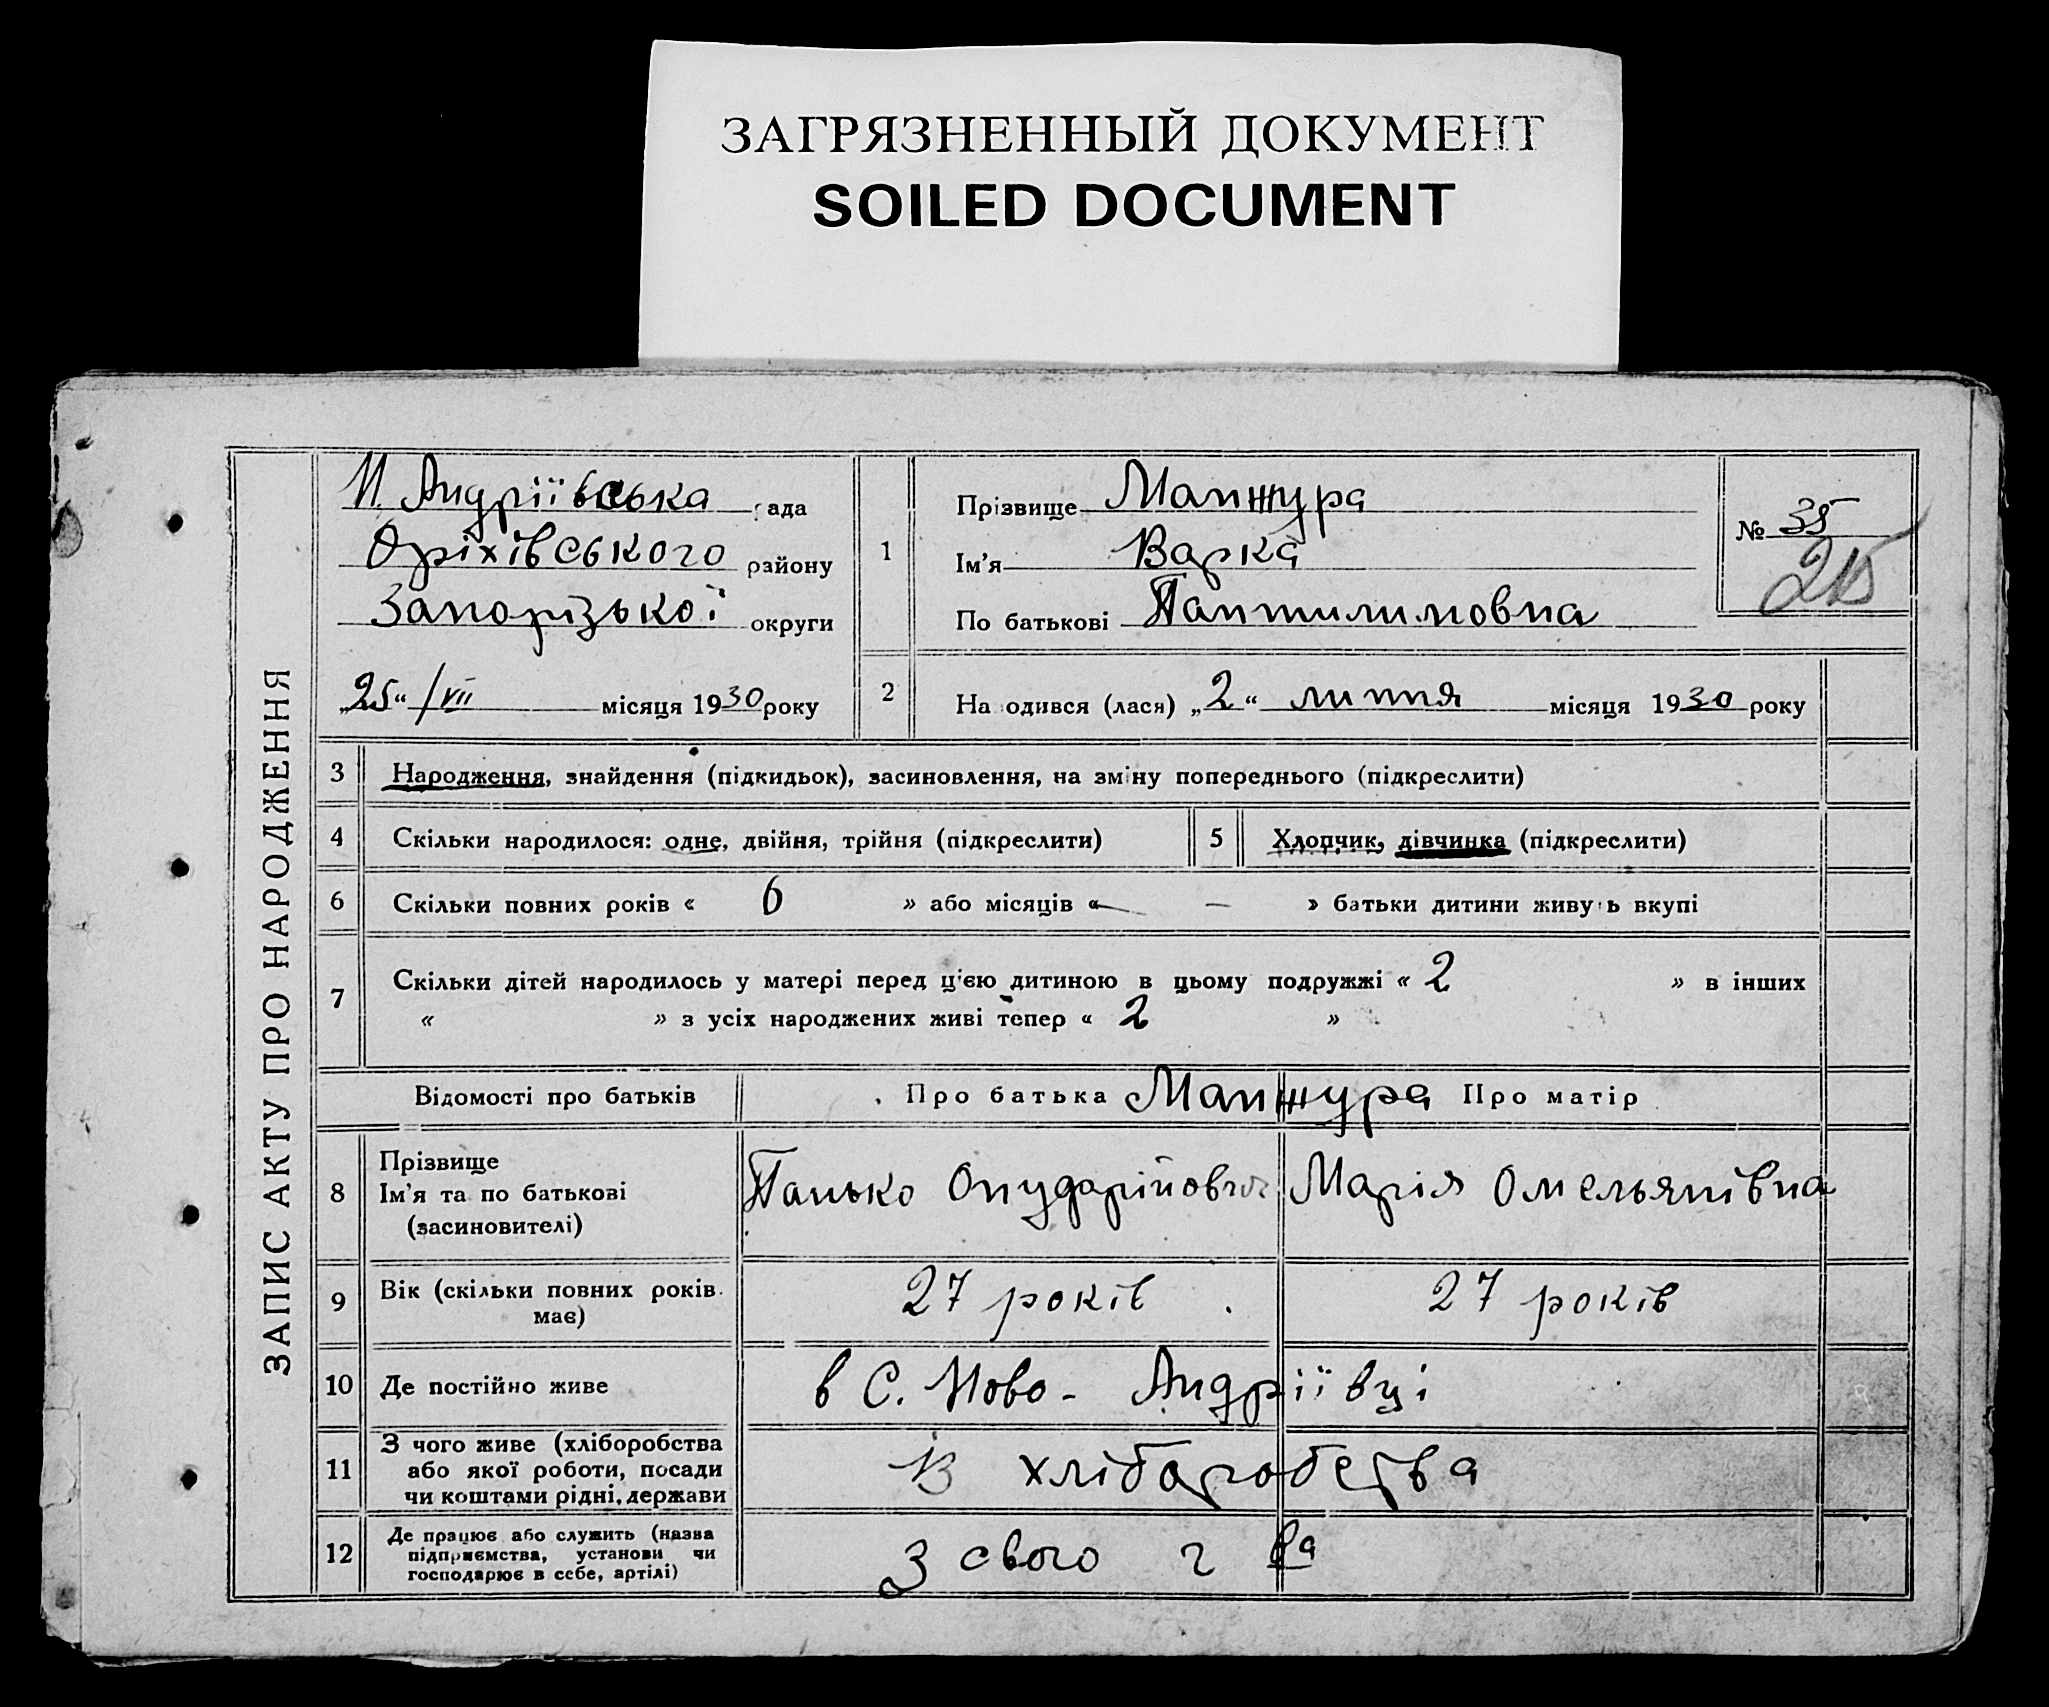 ЗАГРЯЗНЕННЫЙ ДОКУМЕНТ
SOILED DOCUMENT
ЗАПИС АКТУ ПРО НАРОДЖЕННЯ
Н. Андріївська рада
Оріхівського району
Запорізької округи
„25“ /VII місяця 1930 року
1
Прізвище Манжура
Ім'я Варка
По батькові Пантилимовна
№ 35
215
2
На одився (лася) „2“ липня місяця 1930 року
3 Народження, знайдення (підкидьок), засиновлення, на зміну попереднього (підкреслити)
4 Скільки народилося: одне, двійня, трійня (підкреслити)
5 Хлопчик, дівчинка (підкреслити)
6 Скільки повних років « 6 » або місяців « — » батьки дитини живуть вкупі
7 Скільки дітей народилось у матері перед ц'єю дитиною в цьому подружжі « 2 » в інших
« » з усіх народжених живі тепер « 2 »
Відомості про батьків Про батька Манжура Про матір
8 Прізвище
Ім'я та по батькові
(засиновителі)
Панько Марія Омельянівна
9 Вік (скільки повних років
має)
27 років 27 років
10 Де постійно живе в С. Ново-Андріївці
11 З чого живе (хліборобства
або якої роботи, посади
чи коштами рідні, держави
Із хліборобства
12 Де працює або служить (назва
підприємства, установи чи
господарює в себе, артілі)
З свого г ва